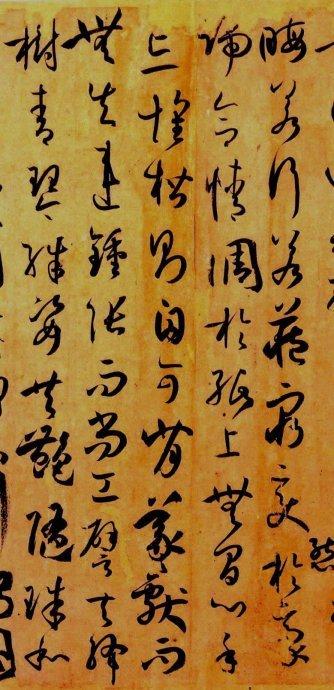 晦若行若藏窮變態於豪
端合情調於紙上無間心手
忘懷楷則自可背羲獻而
無失違鍾張而尚工譬夫絳
樹青琴殊姿共豔隨珠和